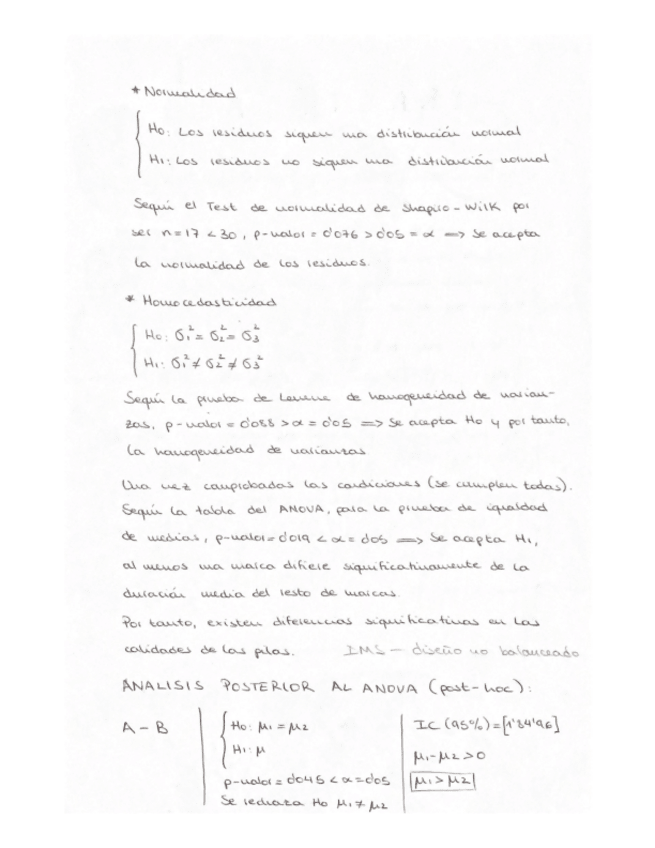 * Normalidad
H0: Los residuos siguen una distribución normal
H1: Los residuos no siguen una distribución normal
Según el Test de normalidad de Shapiro-Wilk por
ser n=17 < 30, p-valor = 0'076 > 0'05 = α => Se acepta
la normalidad de los residuos.
* Homocedasticidad
H0: σ1² = σ2² = σ3²
H1: σ1² ≠ σ2² ≠ σ3²
Según la prueba de Levene de homogeneidad de varian-
zas, p-valor = 0'088 > α = 0'05 => Se acepta H0 y por tanto,
la homogeneidad de varianzas
Una vez comprobadas las condiciones (se cumplen todas).
Según la tabla del ANOVA, para la prueba de igualdad
de medias, p-valor = 0'019 < α = 0'05 => Se acepta H1,
al menos una marca difiere significativamente de la
duración media del resto de marcas.
Por tanto, existen diferencias significativas en las
calidades de las pilas. IMS - diseño no balanceado
ANALISIS POSTERIOR AL ANOVA (post-hoc):
A - B
H0: μ1 = μ2
H1: μ
p-valor = 0'045 < α = 0'05
Se rechaza H0 μ1 ≠ μ2
IC (95%) =
μ1 - μ2 > 0
μ1 > μ2